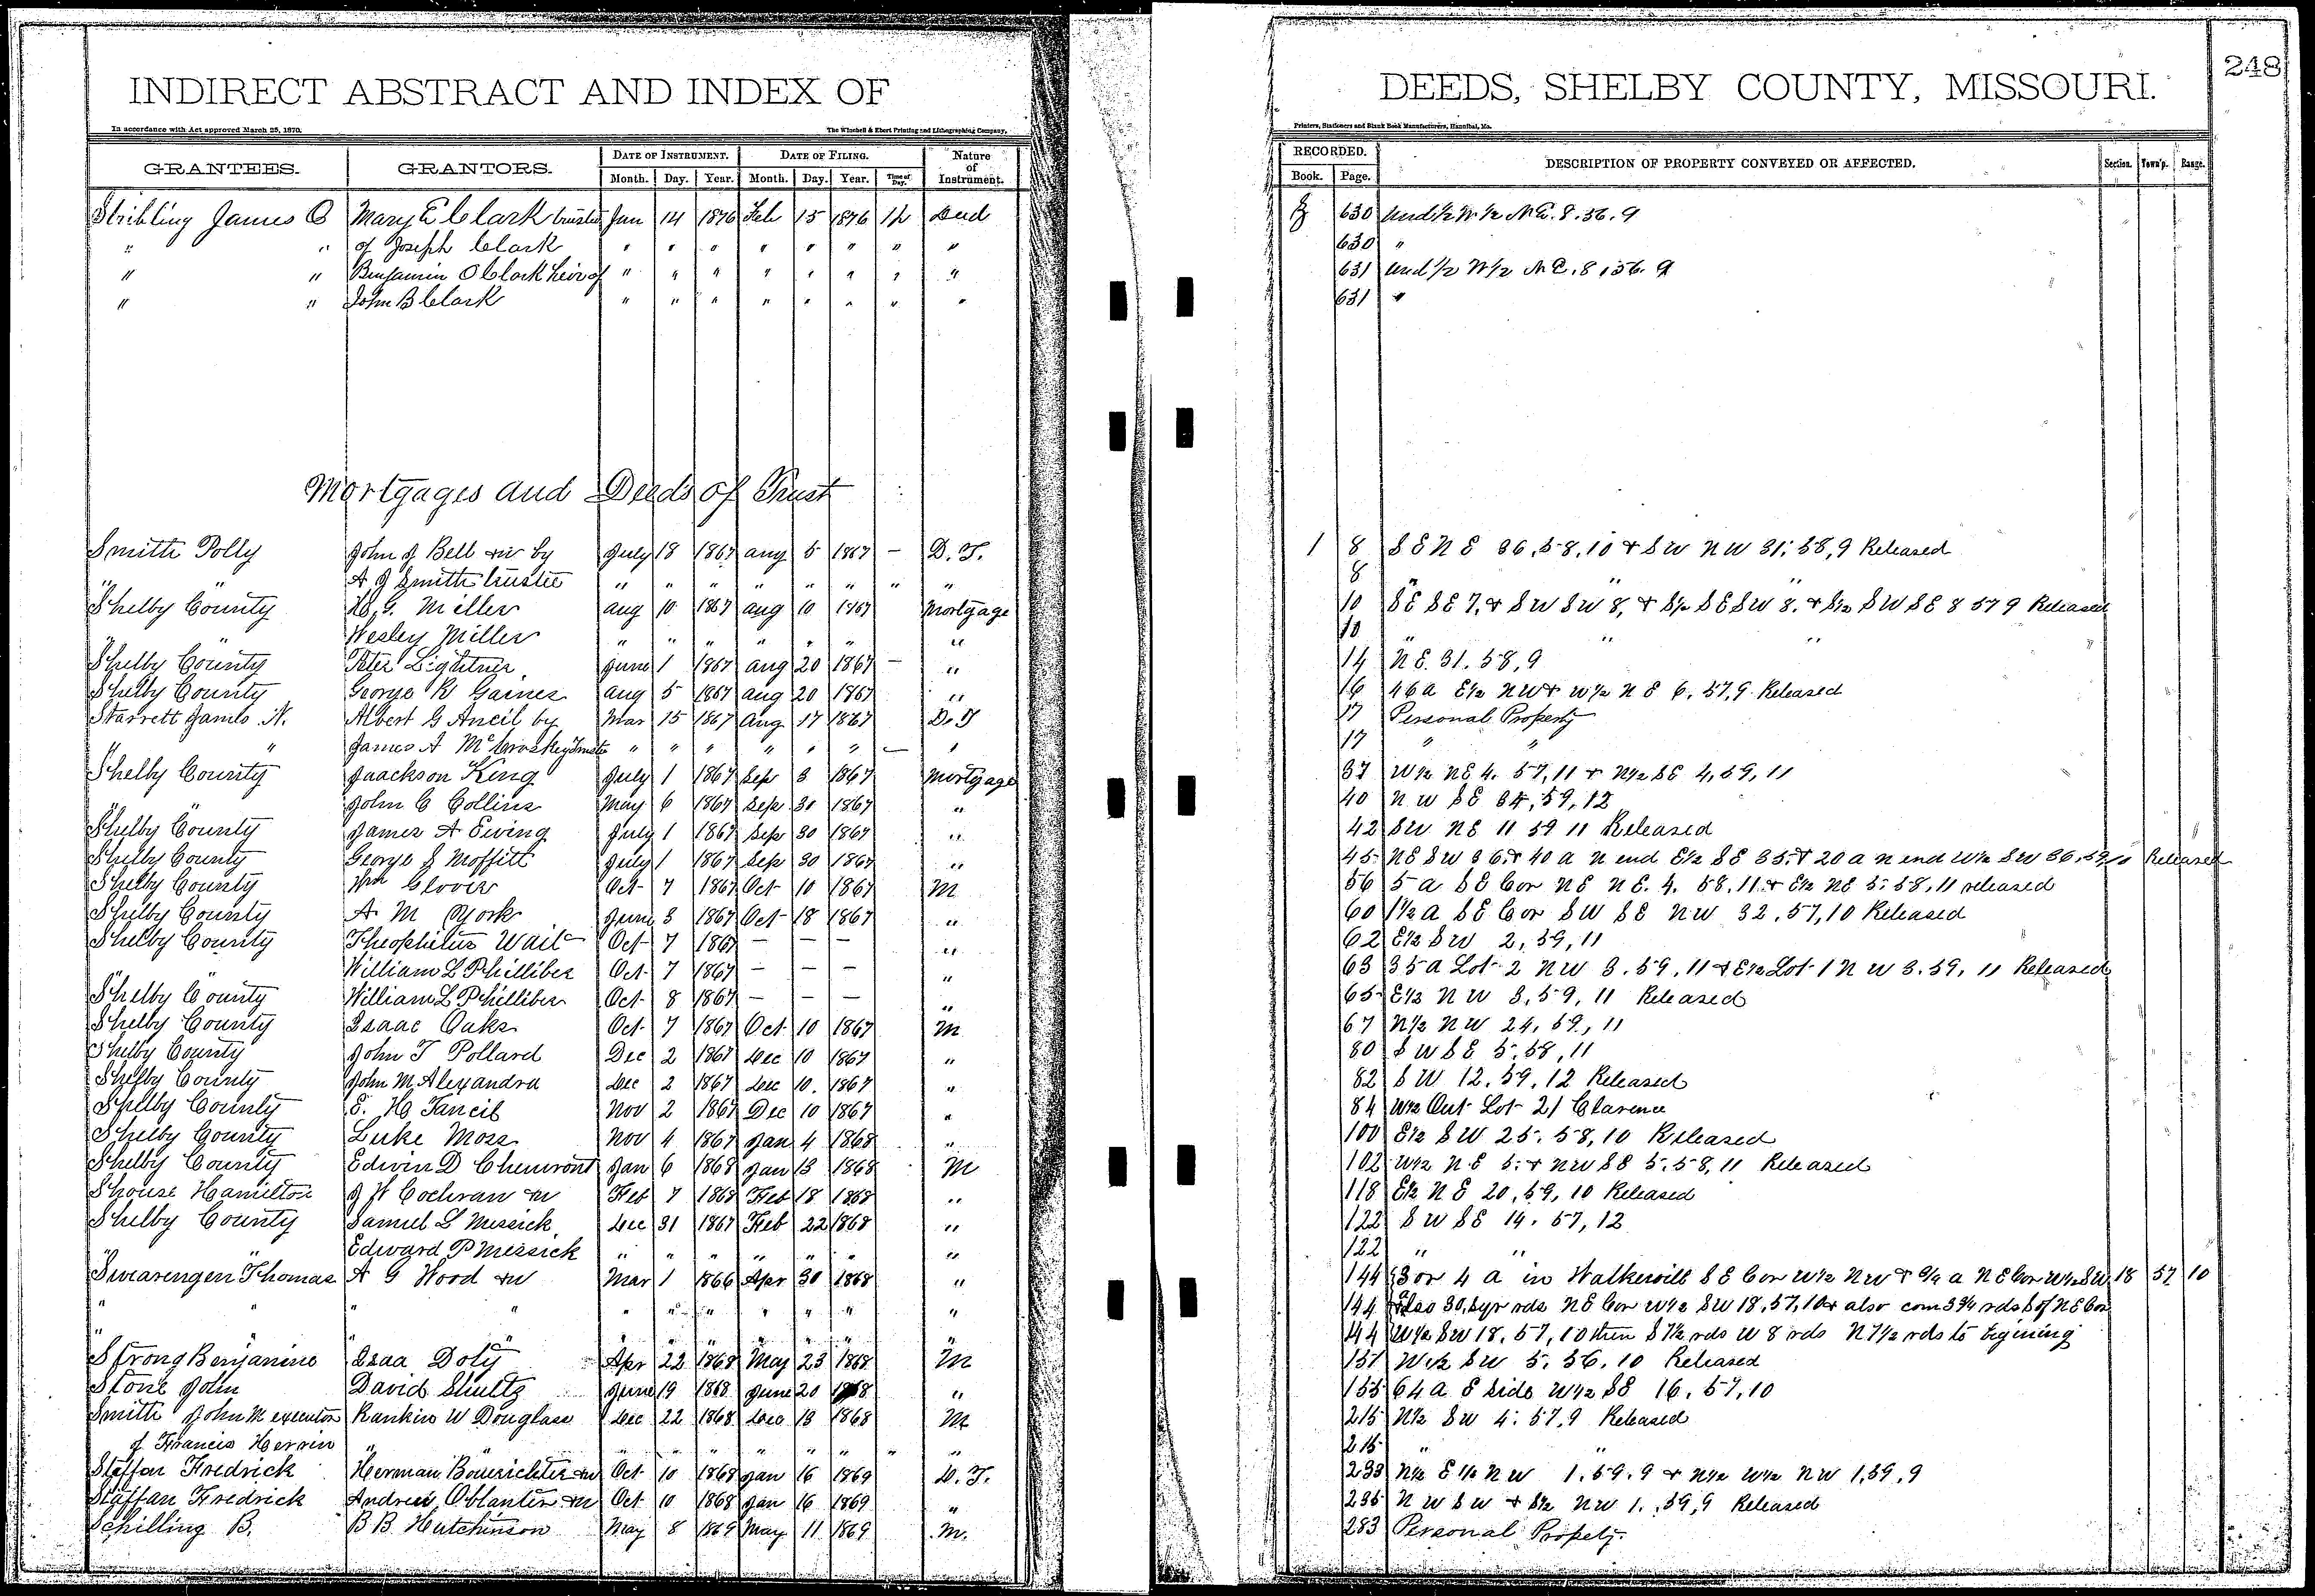 248
INDIRECT ABSTRACT AND INDEX OF DEEDS, SHELBY COUNTY, MISSOURI.
In accordance with Act approved March 25, 1870. The Winchell & Ebert Printing and Lithographing Company, Printers, Stationers and Blank Book Manufacturers, Hannibal, Mo.
GRANTEES. GRANTORS. DATE OF INSTRUMENT. DATE OF FILING. Nature of Instrument. RECORDED. DESCRIPTION OF PROPERTY CONVEYED OR AFFECTED. Section. Town'p. Range.
Month. Day. Year. Month. Day. Year. Time of Day. Book. Page.
Stribling James O Mary E Clark trustee Jan 14 1876 Feb 15 1876 12 Deed 630 und 1/2 W 1/2 N.E. 8.56.9
" " of Joseph Clark " " " " " " " " 630 "
" " Benjamin O Clark heir of " " " " " " " " 631 und 1/2 W 1/2 N E. 8 56.9
" " John B Clark " " " " " " " " 631 "
Mortgages and Deeds of Trust
Smith Polly John J Bell & w by July 18 1867 Aug 5 1867 — D.T. 1 8 S E N E 36, 58, 10 & S W N W 31, 58, 9 Released
" " A J Smith trustee " " " " " " " " 8 " " "
Shelby County H. G. Miller Aug 10 1867 Aug 10 1867 Mortgage 10 S E S E 7, & S W S W 8, & S 1/2 S E S W 8. & S 1/2 S W S E 8 57 9 Released
" " Wesley Miller " " " " " " " 10 " " "
Shelby County Peter Lightner June 1 1867 Aug 20 1867 — " 14 N E. 31. 58, 9
Shelby County George R Gaines Aug 5 1867 Aug 20 1867 " 16 46 a E 1/2 N W & W 1/2 N E 6. 57, 9 Released
Starrett James N. Albert G Ancil by Mar 15 1867 Aug 17 1867 D.T 17 Personal Property
" " James A McCroskey Trustee " " " " " " — " 17 " "
Shelby County Jaackson King July 1 1867 Sep 3 1867 Mortgage 37 W 1/2 N E 4. 57, 11 & N 1/2 S E 4, 59, 11
" " John C Collins May 6 1867 Sep 30 1867 " 40 N W S E 34, 59, 12
Shelby County James A Ewing July 1 1867 Sep 30 1867 " 42 S W N E 11 59 11 Released
Shelby County George S Moffitt July 1 1867 Sep 30 1867 " 45 N E S W 36, & 40 a N end E 1/2 S E 35, & 20 a N end W 1/2 S W 36, 59, 10 Released
Shelby County Wm Glover Oct 7 1867 Oct 10 1867 M 56 5 a S E Cor N E N E. 4. 58, 11 & E 1/2 N E 5. 58, 11 released
Shelby County A. M York June 3 1867 Oct 18 1867 " 60 1 1/2 a S E Cor S W S E N W 32, 57, 10 Released
Shelby County Theophilus Wait Oct 7 1867 — — — " 62 E 1/2 S W 2, 59, 11
" " William L Philliber Oct 7 1867 — — — " 63 35 a Lot 2 N W 3. 59, 11 & E 1/2 Lot 1 N W 3. 59, 11 Released
Shelby County William L Philliber Oct 8 1867 — — — " 65 E 1/2 N W 3, 59, 11 Released
Shelby County Isaac Oaks Oct 7 1867 Oct 10 1867 M 67 N 1/2 N W 24, 59, 11
Shelby County John T Pollard Dec 2 1867 Dec 10 1867 " 80 S W S E 5. 58, 11
Shelby County John M Alexandra Dec 2 1867 Dec 10. 1867 " 82 S W 12. 59. 12 Released
Shelby County E. H. Tancil Nov 2 1867 Dec 10 1867 " 84 W 1/2 Out Lot 21 Clarence
Shelby County Luke Moss Nov 4 1867 Jan 4 1868 " 100 E 1/2 S W 25. 58, 10 Released
Shelby County Edwin D Chenvront Jan 6 1868 Jan 13 1868 M 102 W 1/2 N E 5. & N W S E 5. 58, 11 Released
Shouse Hamilton J W Cochran & w Feb 7 1868 Feb 18 1868 " 118 E 1/2 N E 20, 59, 10 Released
Shelby County Samuel L Messick Dec 31 1867 Feb 22 1868 " 122 S W S E 14. 57, 12
" " Edward P Messick " " " " " " " 122 " "
Swearengen Thomas A G Wood & w Mar 1 1866 Apr 30 1868 " 144 3 or 4 a in Walkersvill S E Cor W 1/2 N W & 9/4 a N E Cor W 1/2 S W 18 57 10
" " " " " " " " " " " 144 & also 30, Syr rds N E Cor W 1/2 S W 18, 57, 10 & also com 33/4 rds S of N E Cor
" " " " " " " " " " 144 W 1/2 S W 18. 57, 10 then S 7 1/2 rds W 8 rds N 7 1/2 rds to begining
Strong Benjamine Isaa Doty Apr 22 1868 May 23 1868 M 151 W 1/2 S W 5. 56. 10 Released
Stone John David Shultz June 19 1868 June 20 1868 " 155 64 a E Side W 1/2 S E 16. 57, 10
Smith John M executor Rankin W Douglass Dec 22 1868 Dec 13 1868 M 215 N 1/2 S W 4. 57, 9 Released
of Francis Herrin " " " " " " " " " 215 " "
Staffan Fredrick Herman Bouerichter & w Oct 10 1868 Jan 16 1869 D.T. 233 N 1/2 E 1/2 N W 1. 59. 9 & N 1/2 W 1/2 N W 1, 59, 9
Staffan Fredrick Andrew Oblanter & w Oct 10 1868 Jan 16 1869 " 235 N W S W & S 1/2 N W 1. 59, 9 Released
Schilling B. B B. Hutchinson May 8 1869 May 11 1869 M. 283 Personal Propety.